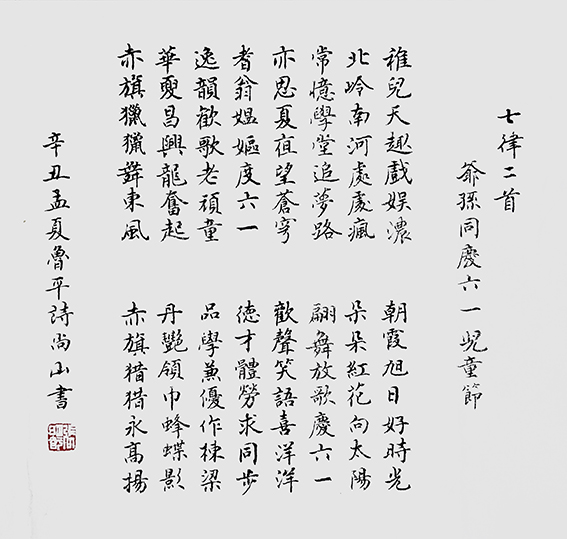 七律二首
爺孫同慶六一兒童節
稚兒天趣戲娛濃
北岭南河處處瘋
常憶學堂追夢路
亦思夏夜望蒼穹
耆翁媼嫗度六一
逸韻歡歌老頑童
華夏昌興龍奮起
赤旗獵獵舞東風
朝霞旭日好時光
朵朵紅花向太陽
翩舞放歌慶六一
歡聲笑語喜洋洋
德才體勞求同步
品學兼優作棟梁
丹艷領巾蜂蝶影
赤旗猎猎永高揚
辛丑孟夏魯平詩尚山書